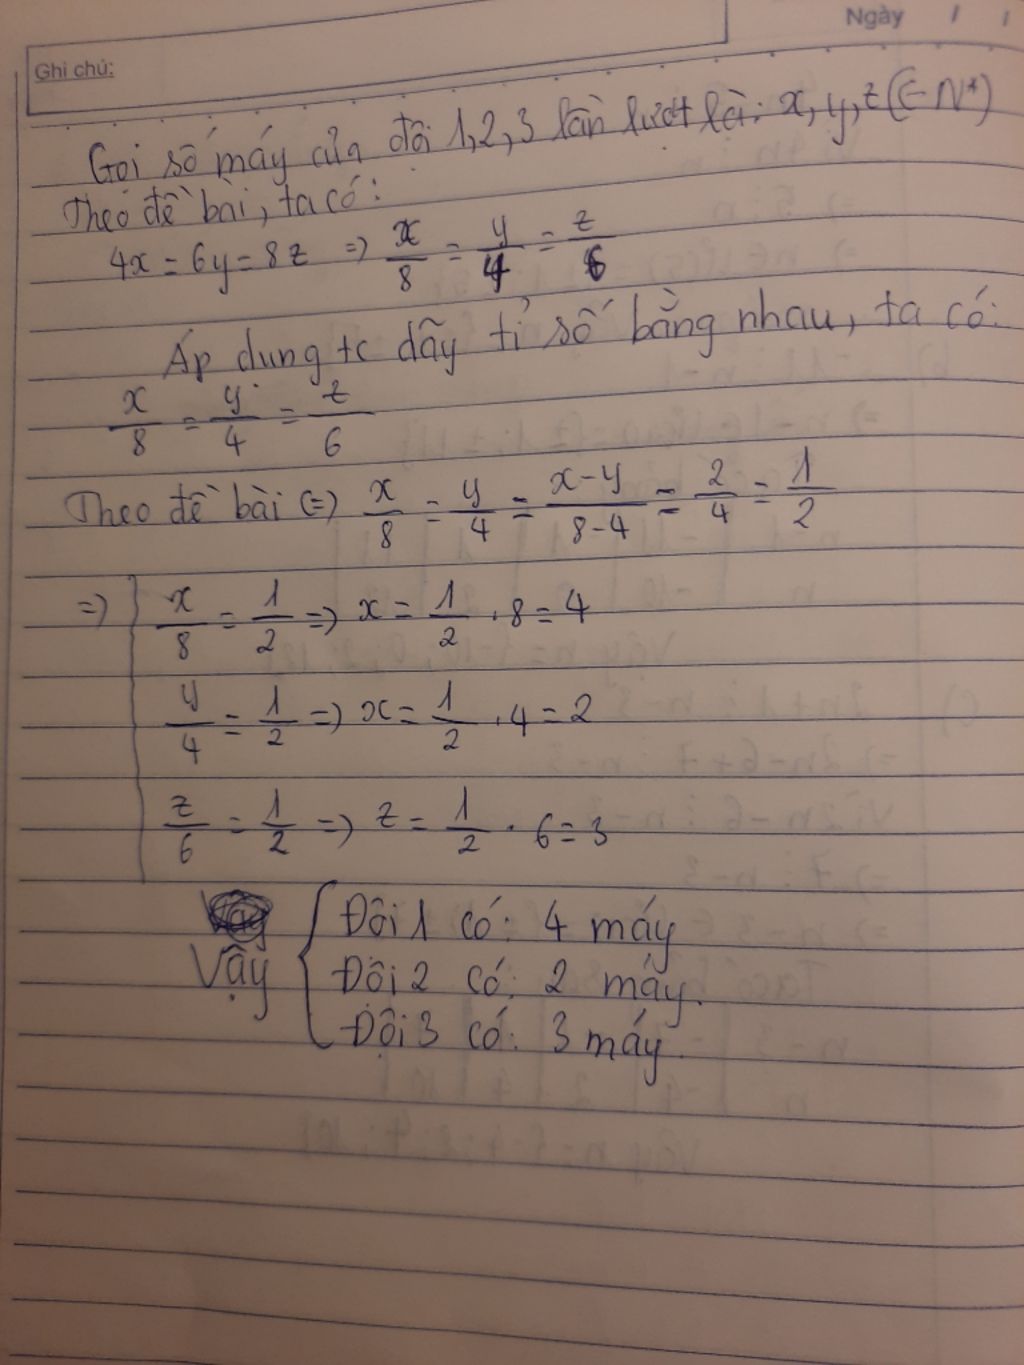 Ngày / /
Ghi chú:
Gọi số máy của đội 1,2,3 lần lượt là: x, y, z (∈ N*)
Theo đề bài, ta có:
4x = 6y = 8z => x/8 = y/4 = z/6
Áp dụng tc dãy tỉ số bằng nhau, ta có:
x/8 = y/4 = z/6
Theo đề bài (=) x/8 = y/4 = x-y/8-4 = 2/4 = 1/2
=> x/8 = 1/2 => x = 1/2 . 8 = 4
y/4 = 1/2 => x = 1/2 . 4 = 2
z/6 = 1/2 => z = 1/2 . 6 = 3
Vậy { Đội 1 có: 4 máy
Đội 2 có: 2 máy.
Đội 3 có: 3 máy.